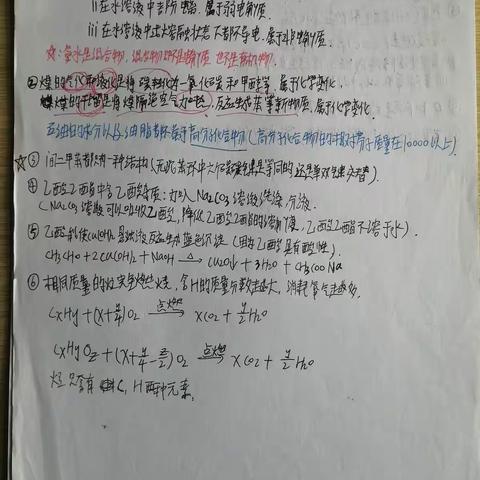 ii 在水溶液中部分电离，属于弱电解质.
iii 在水溶液中或熔融状态下都不导电，属于非电解质.
☆：氨水是混合物，混合物既不是电解质 也不是非电解质.
② 煤的气化和液化是将煤转化为一氧化碳和甲醇等，属于化学变化.
煤的干馏是将煤隔绝空气加热，反应生成苯等新物质，属于化学变化.
石油的成分以及油脂都不属于高分子化合物（高分子化合物的相对分子质量在10000以上）.
☆③ 间二甲苯都只有一种结构（无论苯环中六个碳碳键是等同的还是单双键交替）.
④ 乙酸乙酯中含乙酸杂质：加入Na2CO3溶液洗涤分液.
（Na2CO3溶液可以吸收乙酸，降低乙酸乙酯的溶解度，乙酸乙酯不溶于水）
⑤ 乙酸能使Cu(OH)2 （因为乙酸具有酸性）.
CH3CHO + 2Cu(OH)2 + NaOH —△→ Cu2O↓ + 3H2O + CH3COONa
⑥ 相同质量的烃完全燃烧，含H的质量分数越大，消耗氧气越多.
CxHy + (x+y/4)O2 —点燃→ xCO2 + y/2 H2O
CxHyOz + (x+y/4-z/2)O2 —点燃→ xCO2 + y/2 H2O
烃只含有C，H两种元素.